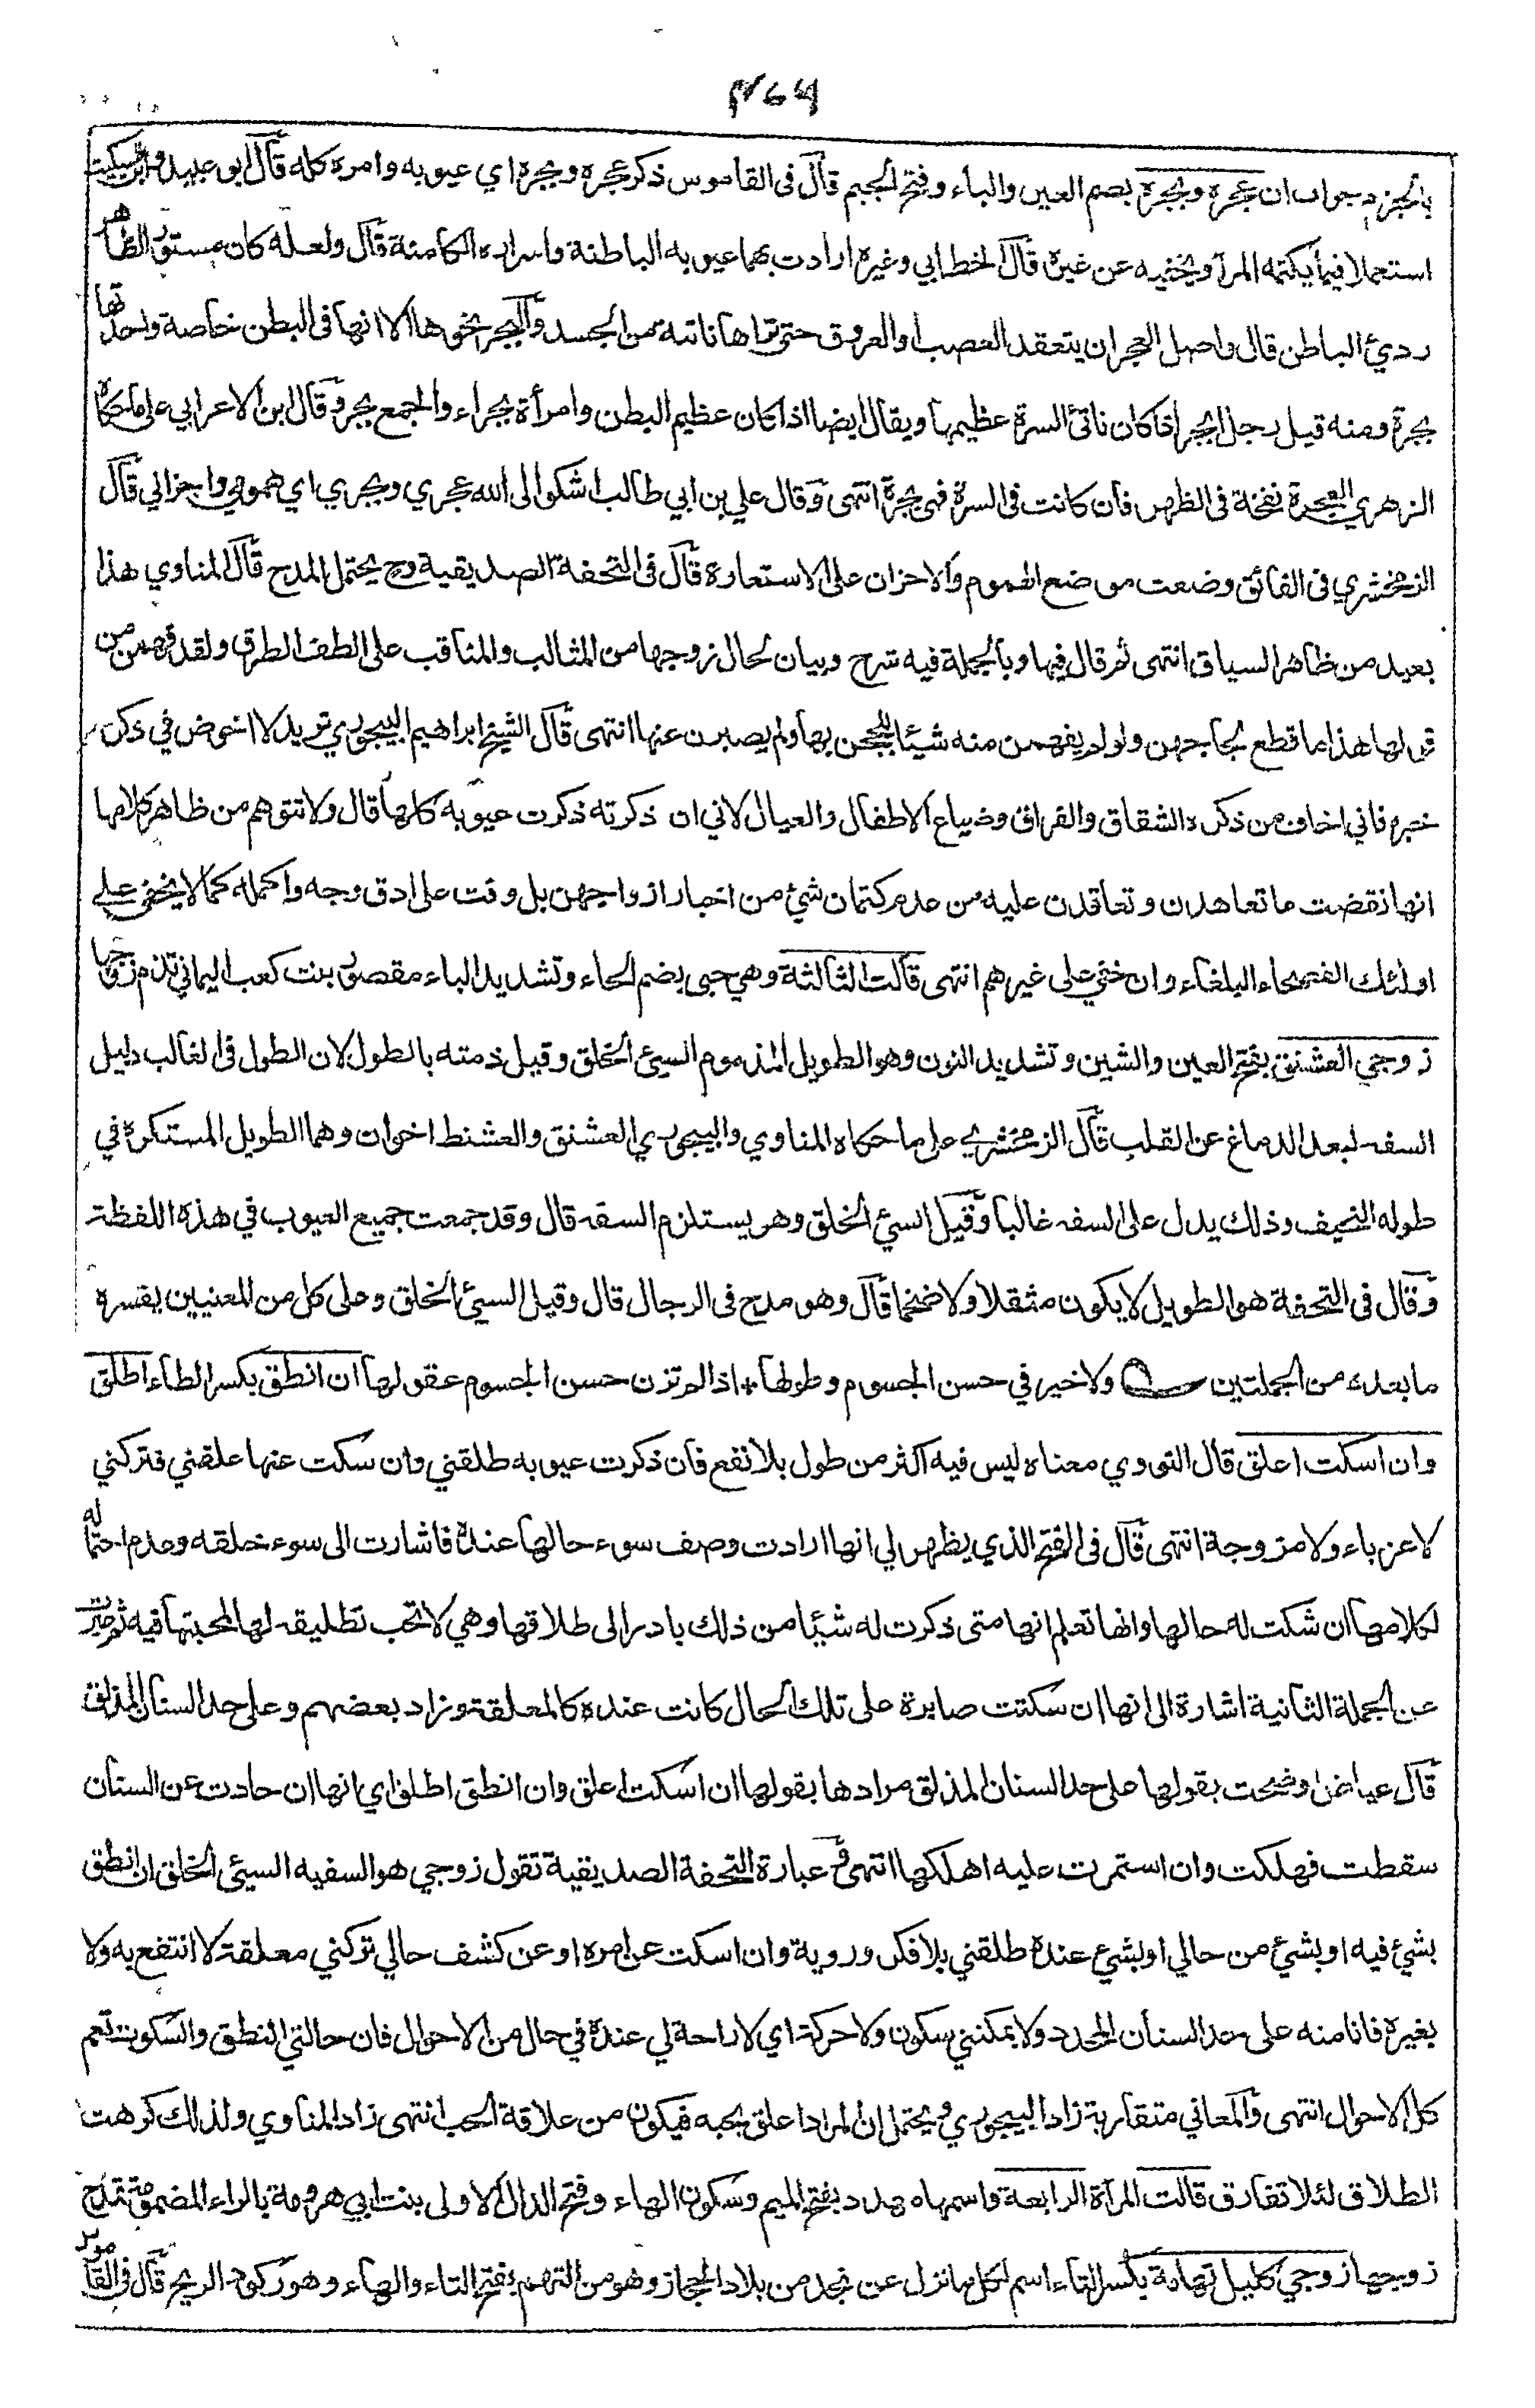 ٤٦٩
بالجزم جواب ان عجره وبجره بضم العين والباء وفتح الجيم قال في القاموس ذكر عجره وبجره اي عيوبه وامره كله قال ابو عبيد وابن السكيت
استعملا فيما يكتمه المرأ ويخفيه عن غيره قال الخطابي وغيره ارادت بهما عيوبه الباطنة واسراره الكامنة قال ولعله كان مستور الظاهر
ردئ الباطن قال واصل العجر ان يتعقد العصب او العروق حتى تراها ناتئة من الجسد والبجر نحوها الا انها في البطن خاصة واحدتها
بجرة ومنه قيل رجل ابجر اذا كان ناتئ السرة عظيمها ويقال ايضا اذا كان عظيم البطن وامرأة بجراء والجمع بجر وقال ابن الاعرابي على ما حكاه
الزهري العجرة نفخة في الظهر فان كانت في السرة فهي بجرة انتهى وقال علي بن ابي طالب اشكوا الى الله عجري وبجري اي همومي واحزاني قال
الزمخشري في الفائق وضعت موضع الهموم والاحزان على الاستعارة قال في التحفة الصديقية وح يحتمل المدح قال المناوي هذا
بعيد من ظاهر السياق انتهى ثم قال فيها وبالجملة فيه شرح وبيان لحال زوجها من المثالب والمناقب على الطف الطرق ولقد فهمن من
قولها هذا ما قطع لجاجهن ولو لم يفهمن منه شيئا للججن بها ولم يصبرن عنها انتهى قال الشيخ ابراهيم البيجوري تريد لا اخوض في ذكر
خبره فاني اخاف من ذكره الشقاق والفراق وضياع الاطفال والعيال لاني ان ذكرته ذكرت عيوبه كلها قال ولا تتوهم من ظاهر كلامها
انها نقضت ما تعاهدن وتعاقدن عليه من عدم كتمان شئ من اخبار ازواجهن بل وفت على ادق وجه واكمله كما لا يخفى على
اولئك الفصحاء البلغاء وان خفي على غيرهم انتهى قالت الثالثة وهي حبى بضم الحاء وتشديد الباء مقصور بنت كعب اليماني تذم زوجها
زوجي العشنق بفتح العين والشين وتشديد النون وهو الطويل المذموم السيئ الخلق وقيل ذمته بالطول لان الطول في الغالب دليل
السفه لبعد الدماغ عن القلب قال الزمخشري على ما حكاه المناوي والبيجوري العشنق والعشنط اخوان وهما الطويل المستكره في
طوله النحيف وذلك يدل على السفه غالبا وقيل السئ الخلق وهو يستلزم السفه قال وقد جمعت جميع العيوب في هذه اللفظة
وقال في التحفة هو الطويل لا يكون مثقلا ولا ضخما قال وهو مدح في الرجال قال وقيل السيئ الخلق وعلى كل من المعنيين يفسره
ما بعده من الجملتين ولا خير في حسن الجسوم وطولها * اذا لم تزن حسن الجسوم عقولها ان انطق بكسر الطاء اطلق
وان اسكت اعلق قال النووي معناه ليس فيه اكثر من طول بلا نفع فان ذكرت عيوبه طلقني وان سكت عنها علقني فتركني
لا عزباء ولا مزوجة انتهى قال في الفتح الذي يظهر لي انها ارادت وصف سوء حالها عنده فاشارت الى سوء خلقه وعدم احتماله
لكلامها ان شكت له حالها وانها تعلم انها متى ذكرت له شيئا من ذلك بادر الى طلاقها وهي لا تحب تطليقه لها لمحبتها فيه ثم عبرت
عن الجملة الثانية اشارة الى انها ان سكتت صابرة على تلك الحال كانت عنده كالمعلقة وزاد بعضهم وعلى حد السنان المذلق
قال عياض اوضحت بقولها على حد السنان المذلق مرادها بقولها ان اسكت اعلق وان انطق اطلق اي انها ان حادت عن السنان
سقطت فهلكت وان استمرت عليه اهلكها انتهى وعبارة التحفة الصديقية تقول زوجي هو السفيه السيئ الخلق ان انطق
بشئ فيه او بشئ من حالي او بشئ عنده طلقني بلا فكر وروية وان اسكت عن امره او عن كشف حالي تركني معلقة لا انتفع به ولا
بغيره فانا منه على حد السنان المحدد ولا يمكنني سكون ولا حركة اي لا راحة لي عنده في حال من الاحوال فان حالتي النطق والسكوت تعم
كل الاحوال انتهى والمعاني متقاربة زاد البيجوري ويحتمل ان المراد اعلق بحبه فيكون من علاقة الحب انتهى زاد المناوي ولذلك كرهت
الطلاق لئلا تفارق قالت المرأة الرابعة واسمها مهدد بفتح الميم وسكون الهاء وفتح الدال الاولى بنت ابي هرومة بالراء المضمومة تمدح
زوجها زوجي كليل تهامة بكسر التاء اسم لكل ما نزل عن نجد من بلاد الحجاز وهو من التهم بفتح التاء والهاء وهو ركود الريح قال في القاموس